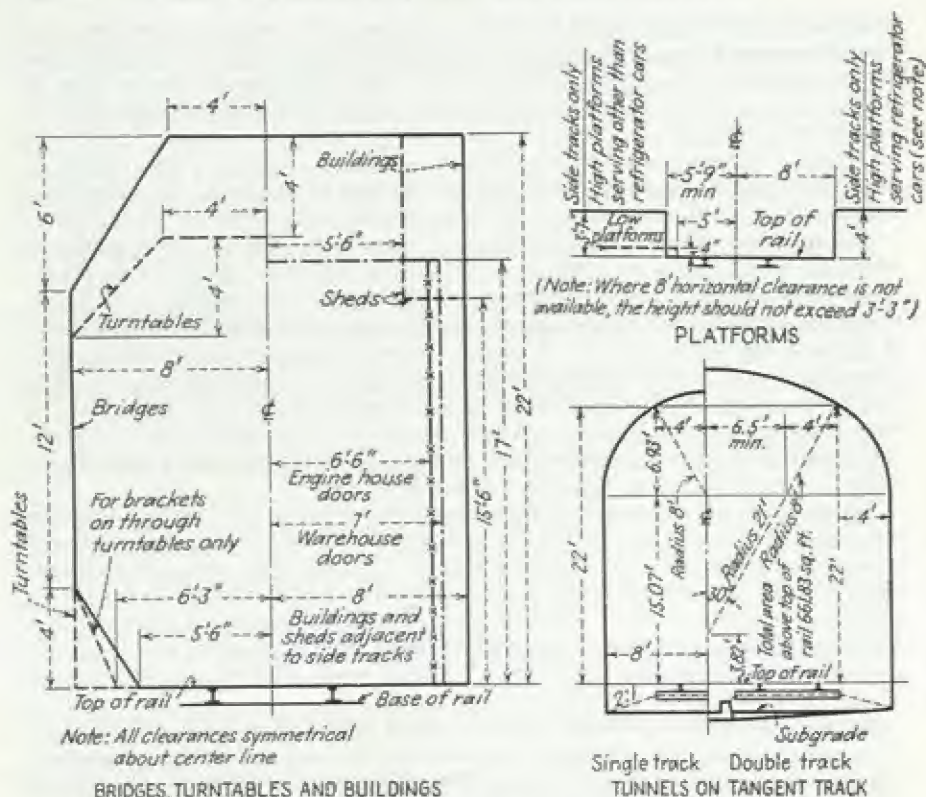 4'
Buildings
6'
4'
4'
5'-6"
4'
Turntables
Sheds
8'
Bridges
℄
12'
22'
17'
15'-6"
6'-6"
Engine house
doors
7'
Warehouse
doors
For brackets
on through
turntables only
Turntables
6'-3"
8'
4'
5'-6"
Buildings and
sheds adjacent
to side tracks
Top of rail
Base of rail
Note: All clearances symmetrical
about center line
BRIDGES TURNTABLES AND BUILDINGS
Side tracks only
High platforms
serving other than
refrigerator cars
Side tracks only
High platforms
serving refrigerator
cars (see note)
5'-9"
min
8'
5'
Low
platforms
4"
Top of
rail
4'
(Note: Where 8' horizontal clearance is not
available, the height should not exceed 3'-3")
PLATFORMS
4'
6.5'
min.
4'
6.93'
22'
Radius 8'
15.07'
30°
Radius 21'
Radius 8'
Total area
above top of
rail 661.83 sq. ft.
22'
4'
8'
Top of rail
2'
Subgrade
Single track
Double track
TUNNELS ON TANGENT TRACK